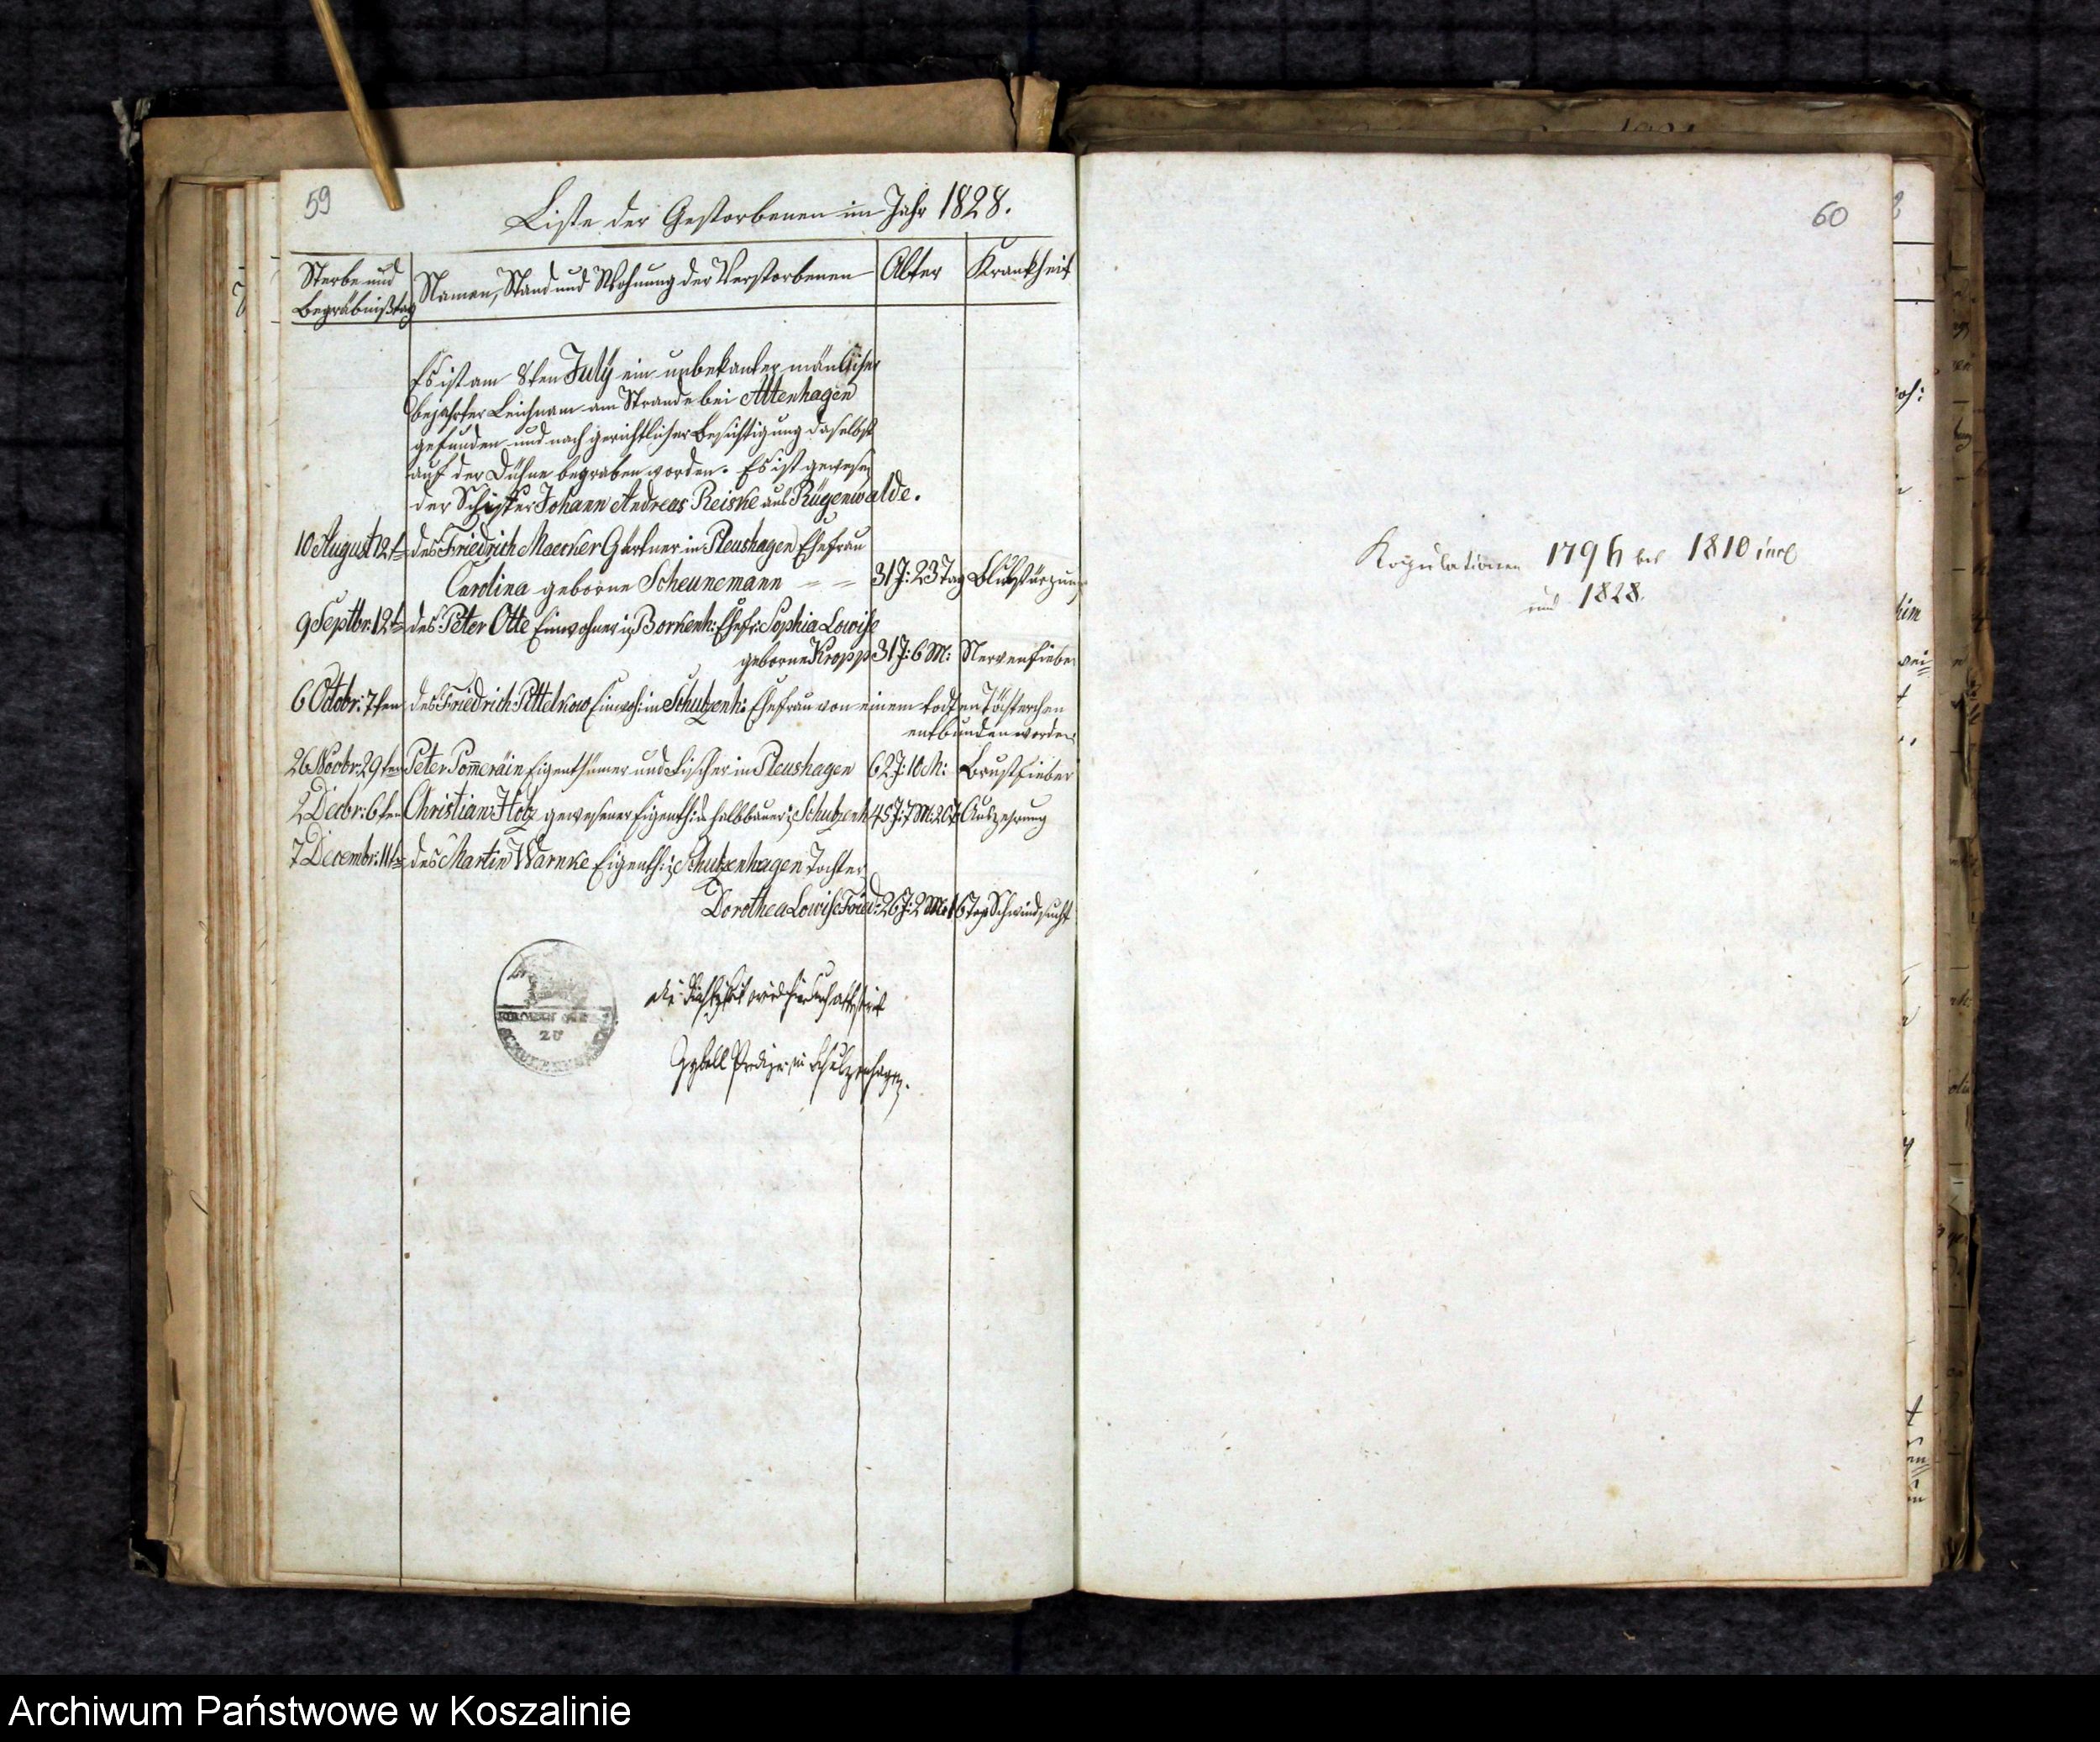 59
Liste der Gestorbenen im Jahr 1828.
Sterbe und
Begräbnißtag
Namen, Stand und Wohnung der Verstorbenen
Alter
Krankheit
Es ist am 8ten July ein unbekanter mänlicher
bejahrter Leichnam am Strande bei Altenhagen
gefunden und nach gerichtlicher Besichtigung daselbst
auf der Dühne begraben worden. Es ist gewesen
der Schiffer Johann Andreas Reiske aus Rügenwalde.
10 August 12t des Friedrich Maecker Gärtner in Pleushagen Ehefrau
Carolina geborne Scheunemann 31 J: 23 Tag Blutstürzung
9 Septbr: 12t des Peter Otte Einwohner in Borkenh: Ehefr: Sophia Lowise
geborne Kropp 31 J: 6 M: Nervenfieber
6 Octobr: 7ten des Friedrich Pittelkow Einwoh: in Schulzenh: Ehefrau von einem todten Töchterchen
entbunden worden
26 Novbr: 29ten Peter Pommeräin Eigenthümer und Fischer in Pleushagen 62 J: 10 M: Brustfieber
2 Decbr: 6ten Christian Hotz gewesener Eigenth: Halbbauer i Schulzenh 45 J: 7 M: 20 Auszehrung
7 Decembr: 11t des Martin Warnke Eigenth: i Schulzenhagen Tochter
Dorothea Lowise Fried: 26 J: 2 M: 16 Tag Schwindsucht
ZU
die Richtigkeit wird hierdurch attestirt
Prediger in Schulzenhagen.
60
Kopulationen 1796 bis 1810 incl
und 1828.
Archiwum Państwowe w Koszalinie